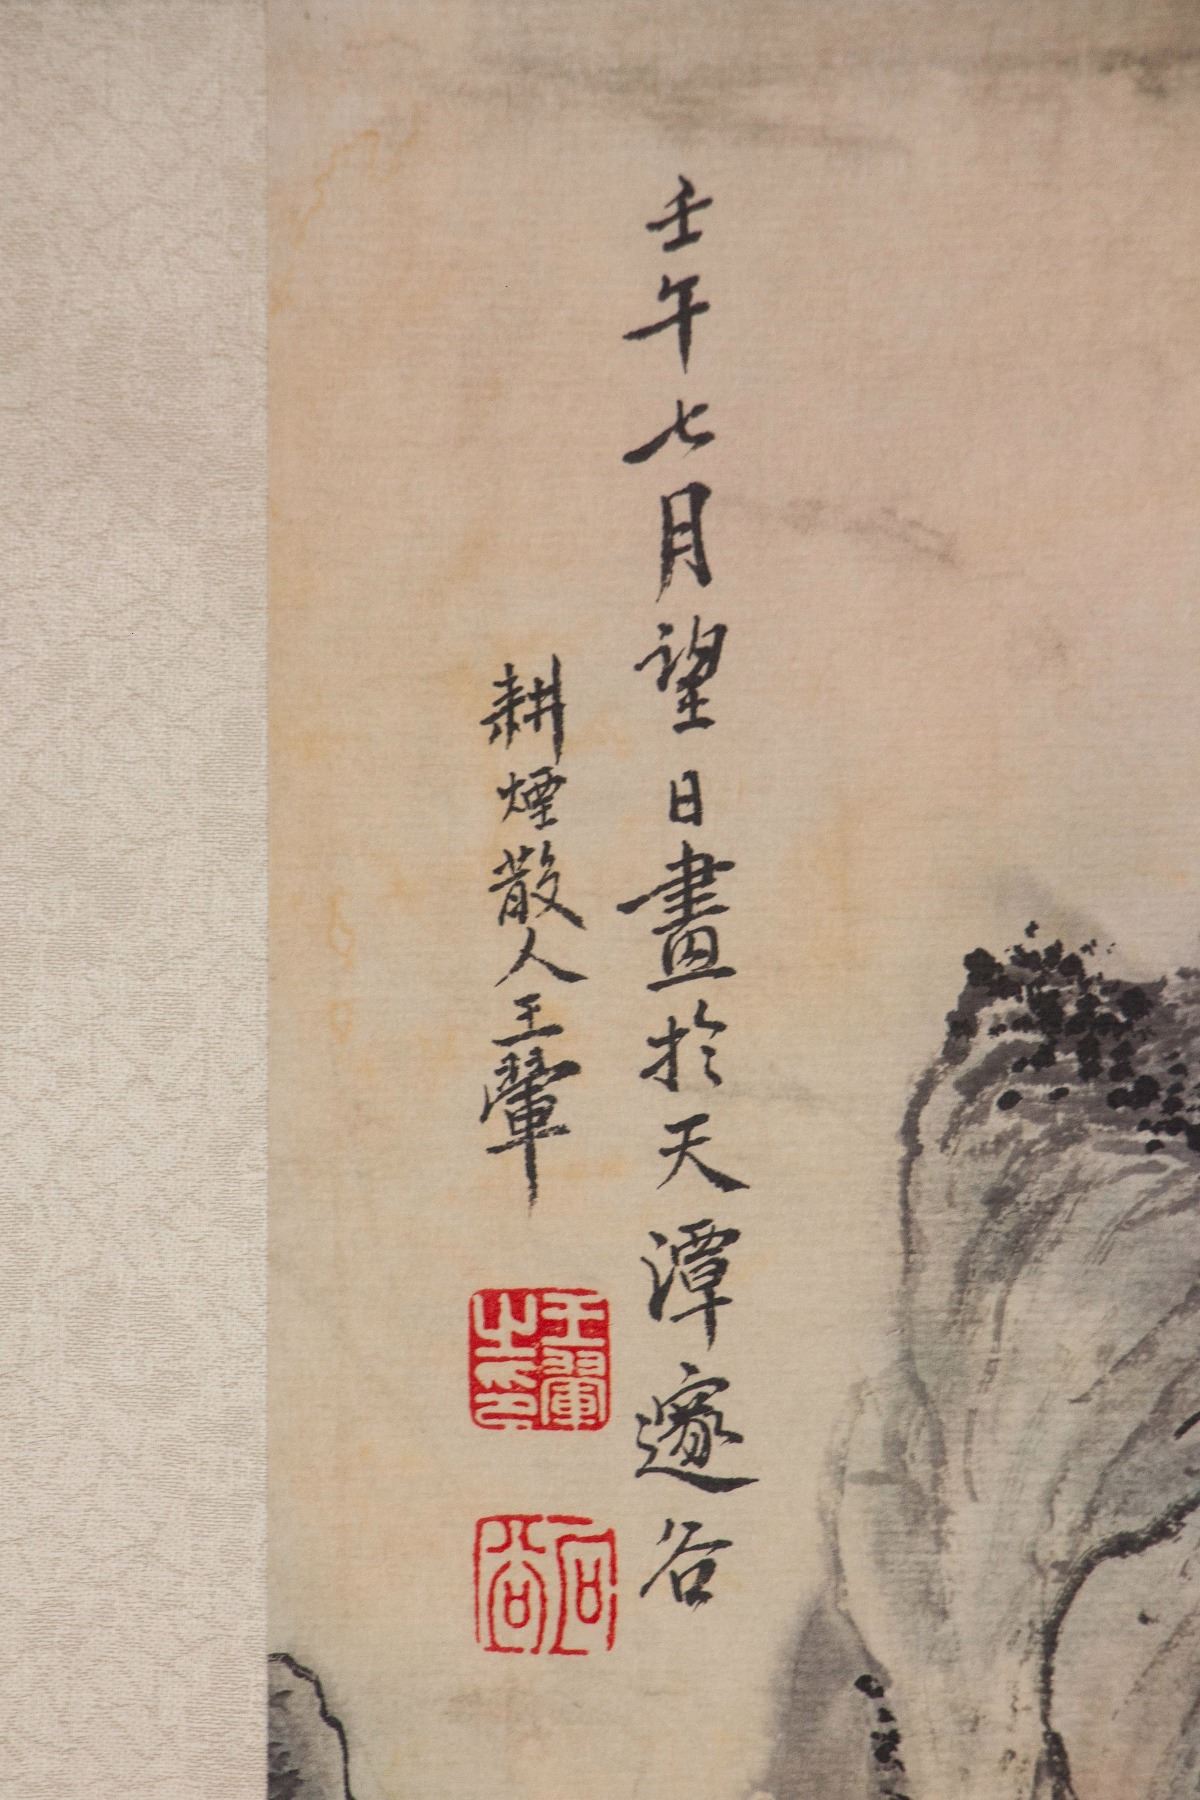 壬午七月望日畫於天潭邃谷
耕煙散人王翬
王翬之印
石谷